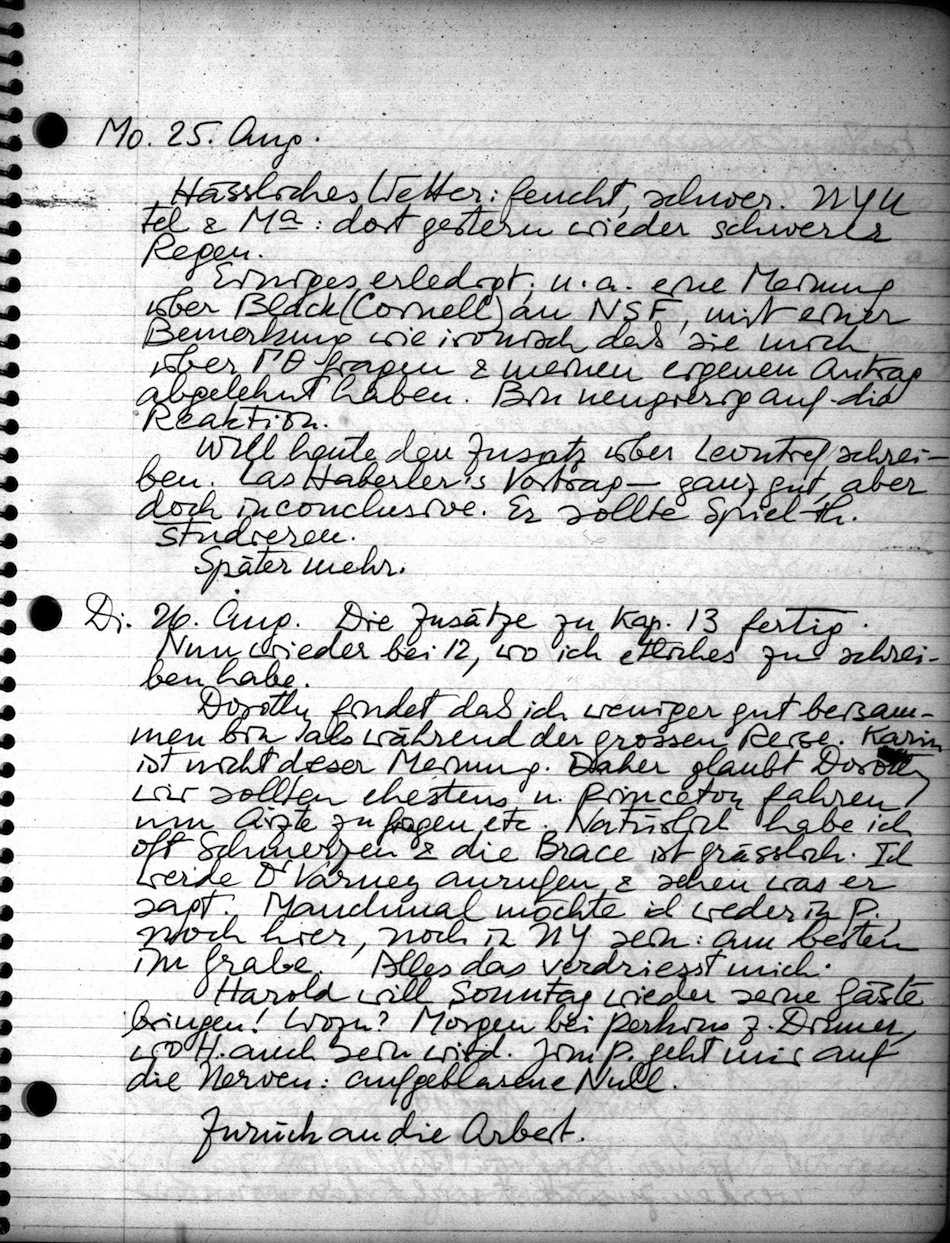 Mo. 25. Aug.
Hässliches Wetter: feucht, schwer. NYU
tel & Ma: dort gestern wieder schwerer
Regen.
Einiges erledigt, u. a. eine Meinung
über Black (Cornell) an NSF, mit einer
Bemerkung wie ironisch das sie mich
über fragen & meinen eigenen Antrag
abgelehnt haben. Bin neugierig auf die
Reaktion.
Will heute den Zusatz über Leontief schrei-
ben. Las Haberler's Vortrag – ganz gut, aber
doch inconclusive. Er sollte Spiel-th.
studieren.
Später mehr.
Di. 26. Aug. Die Zusätze zu Kap. 13 fertig.
Nun wieder bei 12, wo ich etliches zu schrei-
ben habe.
Dorothy findet das ich weniger gut beisam-
men bin als während der grossen Reise. Karin
ist nicht dieser Meinung. Daher glaubt Dorothy
wir sollten ehestens n. Princeton fahren,
um Ärzte zu fragen etc. Natürlich habe ich
oft Schmerzen & die Brace ist grässlich. Ich
werde Varney anrufen & sehen was er
sagt. Manchmal möchte ich weder in P.,
noch hier, noch in NY sein: am besten
im Grabe. Alles das verdriesst mich.
Harold will Sonntag wieder seine Gäste
bringen! Wozu? Morgen bei Perkins z. Dinner,
wo H. auch sein wird. Jim P. geht mir auf
die Nerven: aufgeblasene Null.
Zurück an die Arbeit.